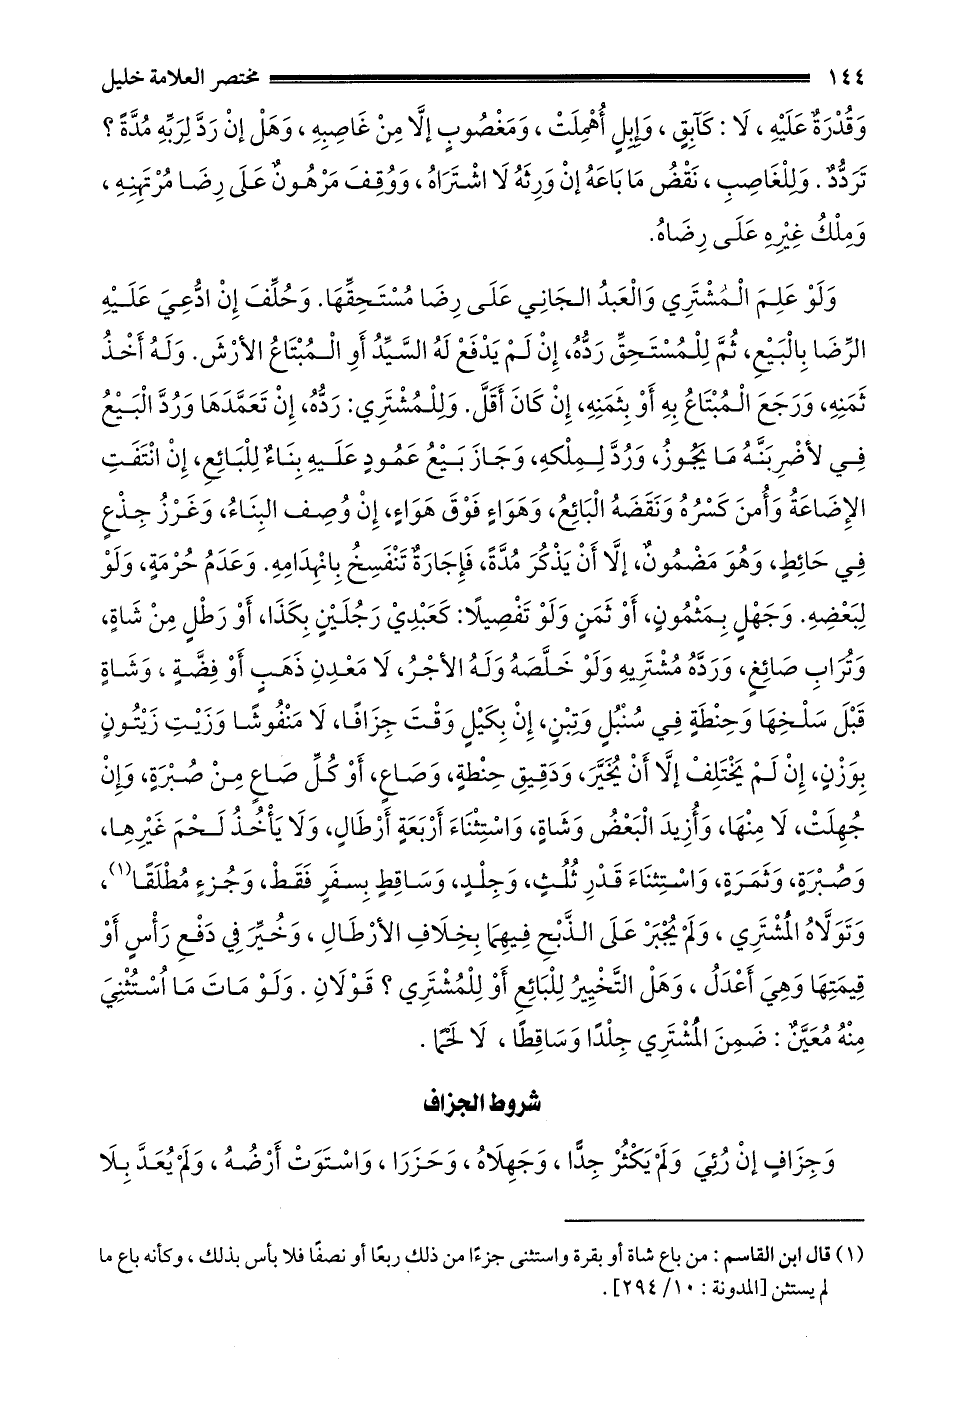 ١٤٤ مختصر العلامة خليل
وَقُدْرَةٌ عَلَيْهِ ، لَا : كَآبِقٍ ، وَإِبِلٍ أُهْمِلَتْ ، وَمَغْصُوبٍ إلَّا مِنْ غَاصِبِهِ ، وَهَلْ إنْ رَدَّ لِرَبِّهِ مُدَّةً ؟
تَرَدُّدٌ . وَلِلْغَاصِبِ ، نَقْضُ مَا بَاعَهُ إنْ وَرِثَهُ لَا اشْتَرَاهُ ، وَوُقِفَ مَرْهُونٌ عَلَى رِضَا مُرْتَهِنِهِ ،
وَمِلْكُ غَيْرِهِ عَلَى رِضَاهُ.
وَلَوْ عَلِمَ الْمُشْتَرِي وَالْعَبْدُ الجَانِي عَلَى رِضَا مُسْتَحِقِّهَا. وَحُلِّفَ إنْ ادُّعِيَ عَلَيْهِ
الرِّضَا بِالْبَيْعِ، ثُمَّ لِلْمُسْتَحِقِّ رَدُّهُ، إنْ لَمْ يَدْفَعْ لَهُ السَّيِّدُ أَوِ الْمُبْتَاعُ الأَرْشَ. وَلَهُ أَخْذُ
ثَمَنِهِ، وَرَجَعَ الْمُبْتَاعُ بِهِ أَوْ بِثَمَنِهِ، إنْ كَانَ أَقَلَّ. وَلِلْمُشْتَرِي: رَدُّهُ، إنْ تَعَمَّدَهَا وَرُدَّ الْبَيْعُ
فِي لأَضْرِبَنَّهُ مَا يَجُوزُ، وَرُدَّ لِمِلْكِهِ، وَجَازَ بَيْعُ عَمُودٍ عَلَيْهِ بِنَاءٌ لِلْبَائِعِ، إنْ انْتَفَتِ
الإِضَاعَةُ وَأُمِنَ كَسْرُهُ وَنَقَضَهُ الْبَائِعُ، وَهَوَاءٍ فَوْقَ هَوَاءٍ، إنْ وُصِفَ البِنَاءُ، وَغَرْزُ جِذْعٍ
فِي حَائِطٍ، وَهُوَ مَضْمُونٌ، إلَّا أَنْ يَذْكُرَ مُدَّةً، فَإِجَارَةٌ تَنْفَسِخُ بِانْهِدَامِهِ. وَعَدَمُ حُرْمَةٍ، وَلَوْ
لِبَعْضِهِ. وَجَهْلٍ بِمَثْمُونٍ، أَوْ ثَمَنٍ وَلَوْ تَفْصِيلًا: كَعَبْدِيْ رَجُلَيْنِ بِكَذَا، أَوْ رَطْلٍ مِنْ شَاةٍ،
وَتُرَابِ صَائِغٍ، وَرَدَّهُ مُشْتَرِيهِ وَلَوْ خَلَّصَهُ وَلَهُ الأَجْرُ، لَا مَعْدِنِ ذَهَبٍ أَوْ فِضَّةٍ ، وَشَاةٍ
قَبْلَ سَلْخِهَا وَحِنْطَةٍ فِي سُنْبُلٍ وَتِبْنٍ، إنْ بِكَيْلٍ وَقْتَ جِزَافًا، لَا مَنْفُوشًا وَزَيْتِ زَيْتُونٍ
بِوَزْنٍ، إنْ لَمْ يَخْتَلِفْ إلَّا أَنْ يُخَيَّرَ، وَدَقِيقِ حِنْطَةٍ، وَصَاعٍ، أَوْ كُلِّ صَاعٍ مِنْ صُبْرَةٍ، وَإِنْ
جُهِلَتْ، لَا مِنْهَا، وَأُرِيدَ الْبَعْضُ وَشَاةٍ، وَاسْتِثْنَاءَ أَرْبَعَةِ أَرْطَالٍ، وَلَا يَأْخُذُ لَحْمَ غَيْرِهِا،
وَصُبْرَةٍ، وَثَمَرَةٍ، وَاسْتِثْنَاءَ قَدْرِ ثُلُثٍ، وَجِلْدٍ، وَسَاقِطٍ بِسفَرٍ فَقَطْ، وَجُزءٍ مُطْلَقًا(١)،
وَتَوَلَّاهُ الْمُشْتَرِي ، وَلَمْ يُجْبَرْ عَلَى الذَّبْحِ فِيهِمَا بِخِلَافِ الأَرْطَالِ ، وَخُيِّرَ فِي دَفْعِ رَأْسٍ أَوْ
قِيمَتِهَا وَهِيَ أَعْدَلُ ، وَهَلْ التَّخْيِيرُ لِلْبَائِعِ أَوْ لِلْمُشْتَرِي ؟ قَوْلَانِ . وَلَوْ مَاتَ مَا اُسْتُثْنِيَ
مِنْهُ مُعَيَّنٌ : ضَمِنَ الْمُشْتَرِي جِلْدًا وَسَاقِطًا ، لَا لَحْمًا .
شروط الجزاف
وَجِزَافٍ إنْ رُئِيَ وَلَمْ يَكْثُرْ جِدًّا ، وَجَهِلَاهُ ، وَحَزَرَا ، وَاسْتَوَتْ أَرْضُهُ ، وَلَمْ يُعَدَّ بِلَا
(١) قال ابن القاسم : من باع شاة أو بقرة واستثنى جزءًا من ذلك ربعًا أو نصفًا فلا بأس بذلك ، وكأنه باع ما
لم يستثن [المدونة : ١٠/ ٢٩٤] .